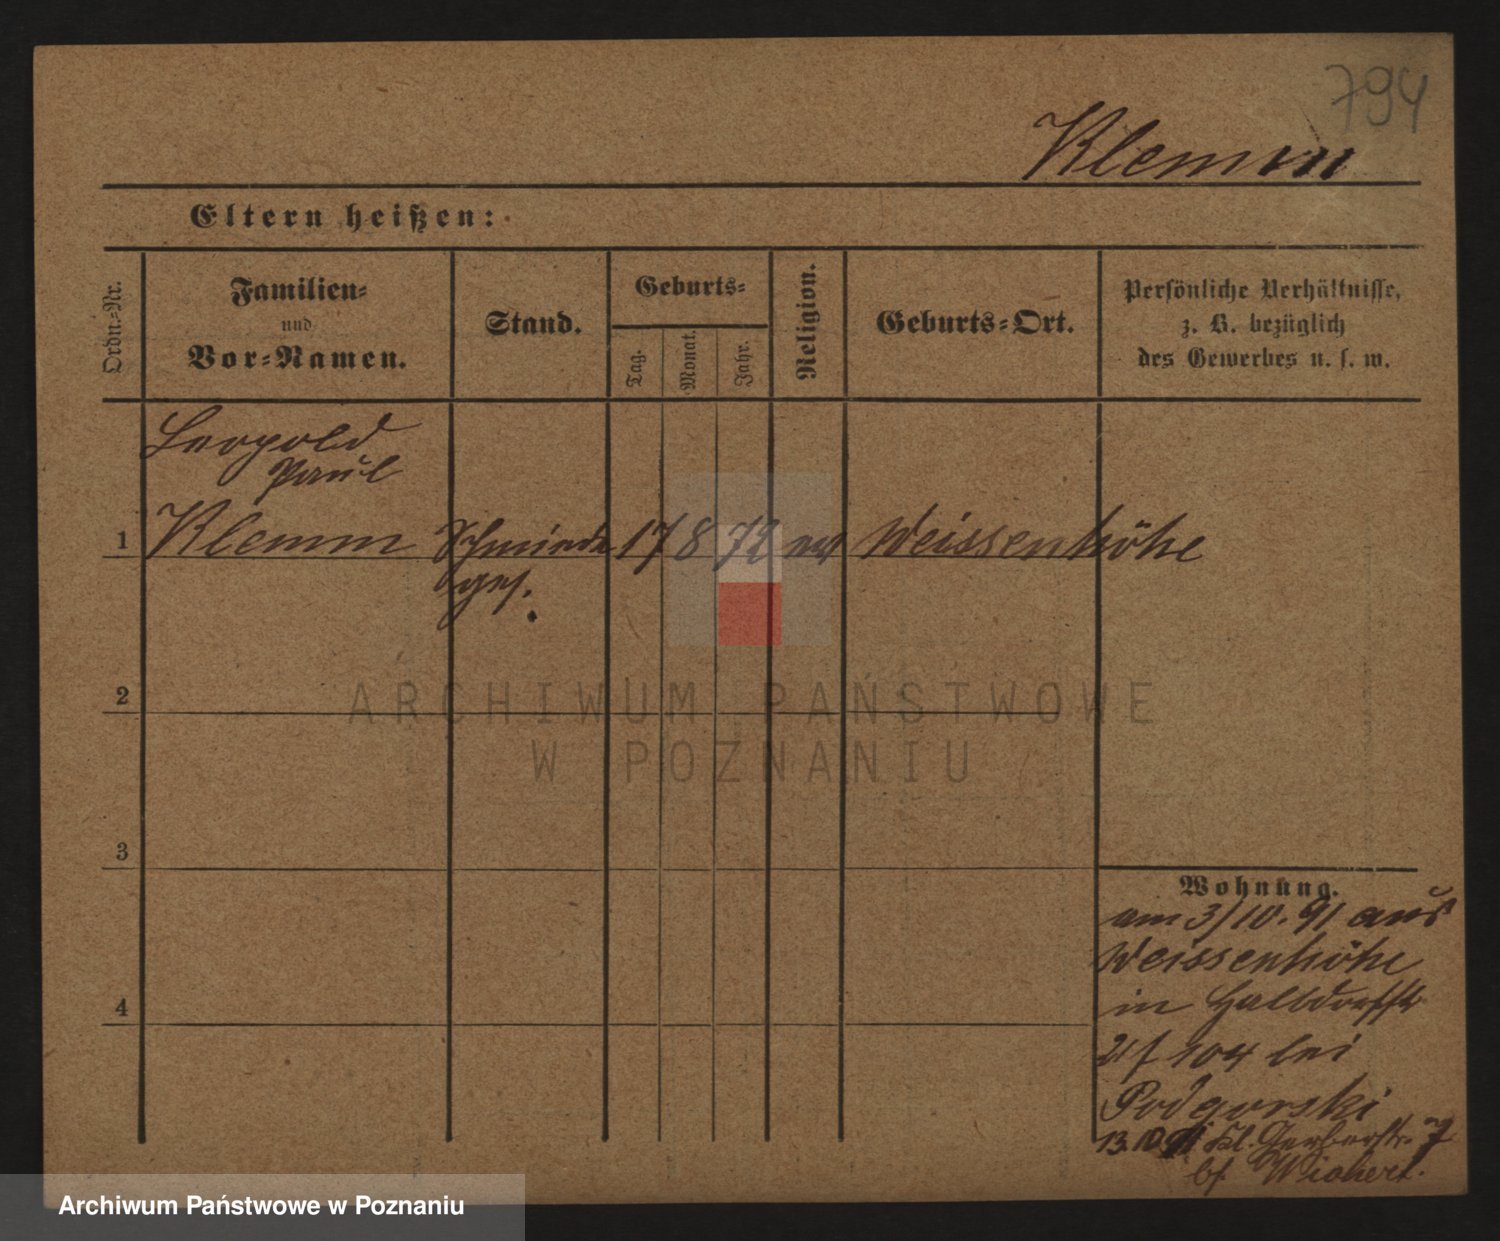 794
Klemm
Eltern heißen:
Ordn.-Nr.
Familien-
und
Vor-Namen.
Stand.
Geburts-
Tag.
Monat.
Jahr.
Religion.
Geburts-Ort.
Persönliche Verhältnisse,
z. B. bezüglich
des Gewerbes u. s. w.
Leopold
Paul
1 Klemm Schmiede 17 8 73 ev Weissenhöhe
ges.
2
3
4
ARCHIWUM PAŃSTWOWE
W POZNANIU
Wohnung.
am 3/10. 91 aus
Weissenhöhe
in Halbdorfstr
21/ 104 bei
Podgorski
13.10.91 Kl. Gerberstr. 7
bf Wichert.
Archiwum Państwowe w Poznaniu